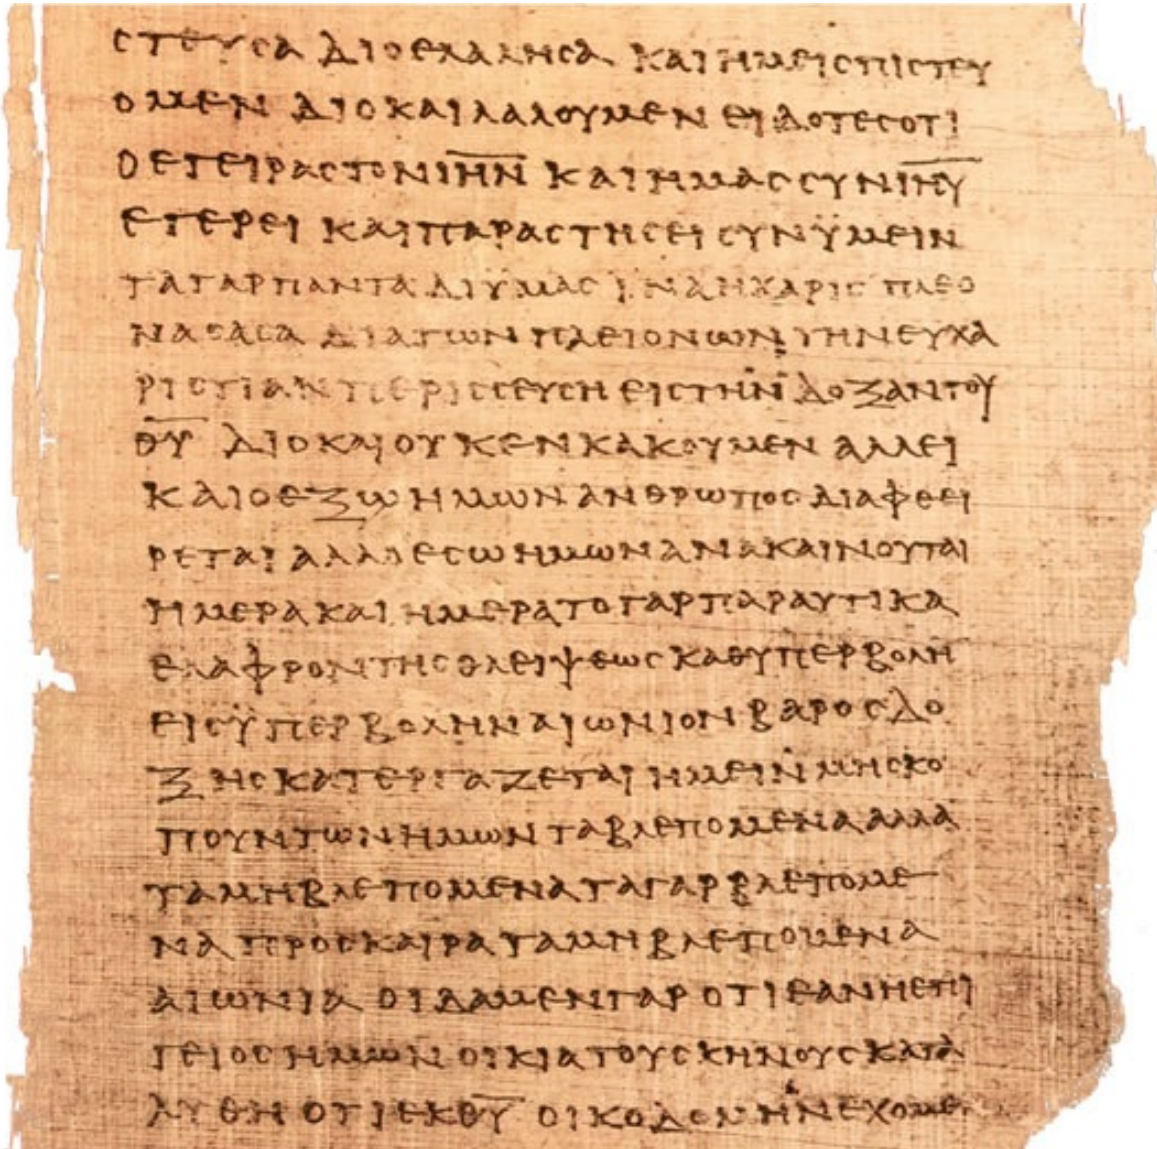 ϹΤΕΥϹΑ ΔΙΟ ΕΛΑΛΗϹΑ ΚΑΙ ΗΜΕΙϹ ΠΙϹΤΕΥ
ΟΜΕΝ ΔΙΟ ΚΑΙ ΛΑΛΟΥΜΕΝ ΕΙΔΟΤΕϹ ΟΤΙ
Ο ΕΓΕΙΡΑϹ ΤΟΝ Ι̅Η̅Ν̅ ΚΑΙ ΗΜΑϹ ϹΥΝ Ι̅Η̅Υ̅
ΕΓΕΡΕΙ ΚΑΙ ΠΑΡΑϹΤΗϹΕΙ ϹΥΝ ΫΜΕΙΝ
ΤΑ ΓΑΡ ΠΑΝΤΑ ΔΙ ΥΜΑϹ ΙΝΑ Η ΧΑΡΙϹ ΠΛΕΟ
ΝΑϹΑϹΑ ΔΙΑ ΤΩΝ ΠΛΕΙΟΝΩΝ ΤΗΝ ΕΥΧΑ
ΡΙϹΤΙΑΝ ΠΕΡΙϹϹΕΥϹΗ ΕΙϹ ΤΗΝ ΔΟΞΑΝ ΤΟΥ
Θ̅Υ̅ ΔΙΟ ΚΑΙ ΟΥΚ ΕΝΚΑΚΟΥΜΕΝ ΑΛΛ ΕΙ
ΚΑΙ Ο ΕΞΩ ΗΜΩΝ ΑΝΘΡΩΠΟϹ ΔΙΑΦΘΕΙ
ΡΕΤΑΙ ΑΛΛ Ο ΕϹΩ ΗΜΩΝ ΑΝΑΚΑΙΝΟΥΤΑΙ
ΗΜΕΡΑ ΚΑΙ ΗΜΕΡΑ ΤΟ ΓΑΡ ΠΑΡΑΥΤΙΚΑ
ΕΛΑΦΡΟΝ ΤΗϹ ΘΛΕΙΨΕΩϹ ΚΑΘ ΥΠΕΡΒΟΛΗ̅
ΕΙϹ ΫΠΕΡΒΟΛΗΝ ΑΙΩΝΙΟΝ ΒΑΡΟϹ ΔΟ
ΞΗϹ ΚΑΤΕΡΓΑΖΕΤΑΙ ΗΜΕΙΝ ΜΗ ϹΚΟ
ΠΟΥΝΤΩΝ ΗΜΩΝ ΤΑ ΒΛΕΠΟΜΕΝΑ ΑΛΛΑ
ΤΑ ΜΗ ΒΛΕΠΟΜΕΝΑ ΤΑ ΓΑΡ ΒΛΕΠΟΜΕ
ΝΑ ΠΡΟϹΚΑΙΡΑ ΤΑ ΜΗ ΒΛΕΠΟΜΕΝΑ
ΑΙΩΝΙΑ ΟΙΔΑΜΕΝ ΓΑΡ ΟΤΙ ΕΑΝ Η ΕΠΙ
ΓΕΙΟϹ ΗΜΩΝ ΟΙΚΙΑ ΤΟΥ ϹΚΗΝΟΥϹ ΚΑΤΑ
ΛΥΘΗ ΟΤΙ ΕΚ Θ̅Υ̅ ΟΙΚΟΔΟΜΗΝ ΕΧΟΜΕ